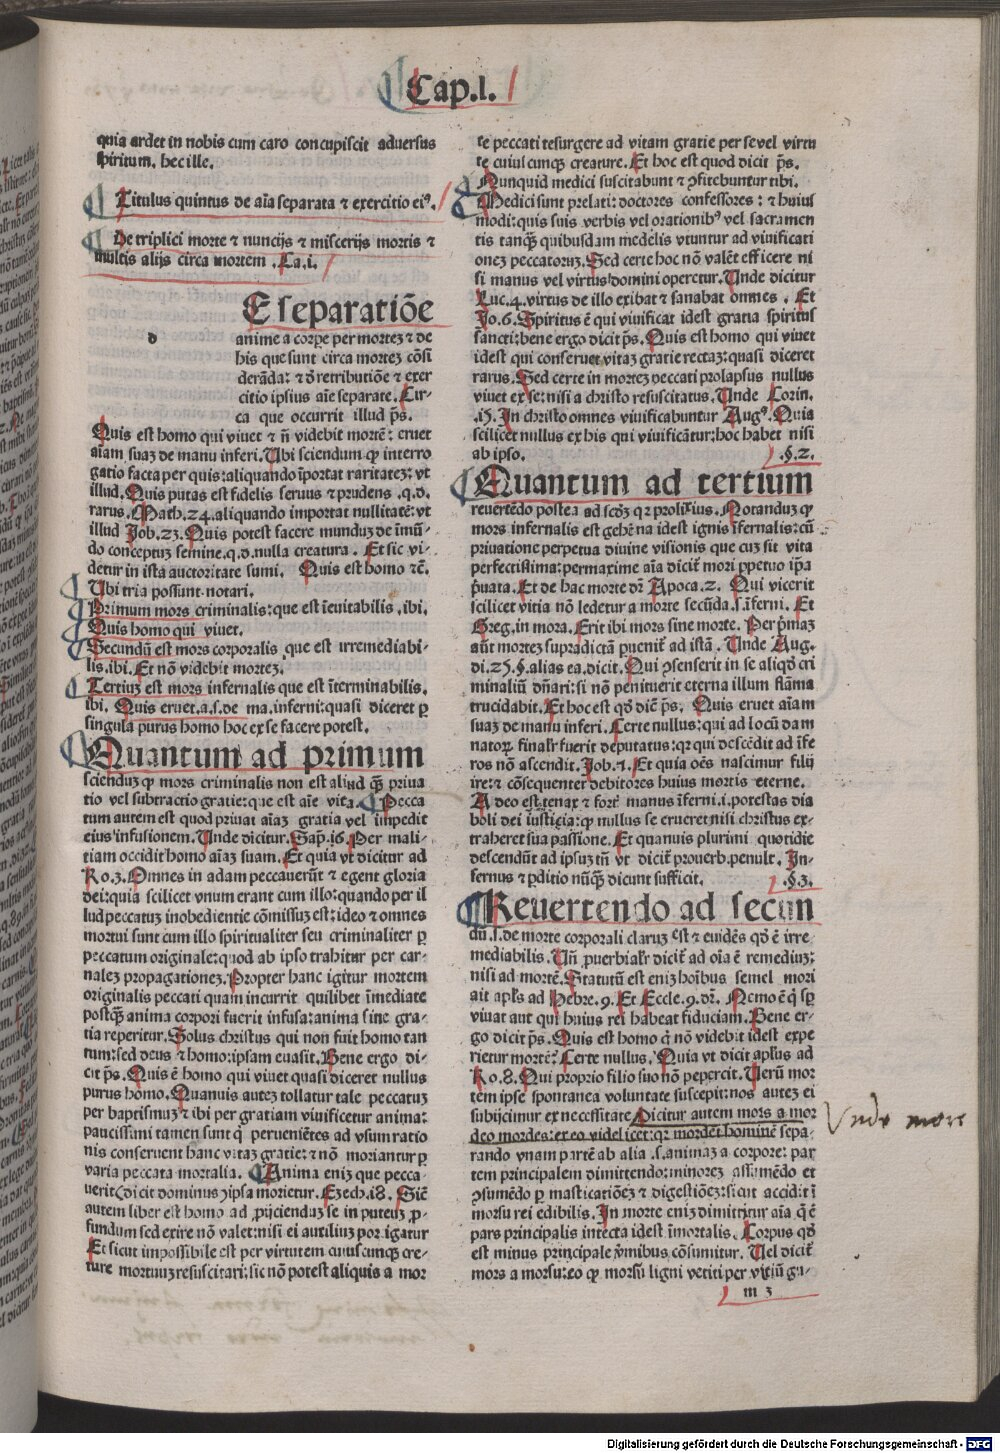 Cap.I.
quia ardet in nobis cum caro concupiscit aduersus
spiritum. hec ille.
Titulus quintus de aīa separata ⁊ exercitio eiꝰ.
De triplici morte ⁊ nuncijs ⁊ miserijs mortis ⁊
multis alijs circa mortem. Ca.i.
E separatiōe
d
anime a corpe per mortez ⁊ de
his que sunt circa mortez cōsi
derāda: ⁊ d̄ retributiōe ⁊ exer
citio ipsius aīe separate. Cir-
ca que occurrit illud p̄s.
Quis est homo qui viuet ⁊ n̄ videbit mortē: eruet
aīam suaz de manu inferi. Ubi sciendum ꝙ interro
gatio facta per quis: aliquando īportat raritatez: vt
illud. Quis putas est fidelis seruus ⁊ prudens .q.d.
rarus. Math.24. aliquando importat nullitatē: vt
illud Job.23. Quis potest facere munduz de īmū-
do conceptuz semine.q.d. nulla creatura. Et sic vi-
detur in ista auctoritate sumi. Quis est homo ⁊c̄.
Ubi tria possunt notari.
Primum mors criminalis: que est īeuitabilis. ibi.
Quis homo qui viuet.
Secundū est mors corporalis que est irremediabi-
lis. ibi. Et nō videbit mortez.
Tertiuz est mors infernalis que est īterminabilis.
ibi. Quis eruet.a.s.de ma. inferni: quasi diceret ꝑ
singula purus homo hoc ex se facere potest.
Quantum ad primum
sciendum ꝙ mors criminalis non est aliud q̄ꝫ priua
tio vel subtractio gratie: que est aīe vita. Pecca
tum autem est quod priuat aīaz gratia vel impedit
eius infusionem. Unde dicitur. Sap.i6. Per mali-
tiam occidit homo aīaz suam. Et quia vt dicitur ad
Ro.3. Omnes in adam peccauerūt ⁊ egent gloria
dei: quia scilicet vnum erant cum illo: quando per il
lud peccatuz inobedientie cōmissuz est: ideo ⁊ omnes
mortui sunt cum illo spiritualiter seu criminaliter ꝑ
peccatum originale: quod ab ipso trahitur per car-
nalez propagationez. Propter hanc igitur mortem
originalis peccati quam incurrit quilibet īmediate
postq̄ꝫ anima corpori fuerit infusa: anima sine gra-
tia reperitur. Solus christus qui non fuit homo tan
tum: sed deus ⁊ homo: ipsam euasit. Bene ergo di-
cit p̄s. Quis ē homo qui viuet quasi diceret nullus
purus homo. Quanuis autez tollatur tale peccatuz
per baptismuz ⁊ ibi per gratiam viuificetur anima:
paucissimi tamen sunt q̄ perueniētes ad vsum ratio
nis conseruent hanc vitaz gratie: ⁊ nō moriantur ꝑ
varia peccata mortalia. Anima eniz que pecca-
uerit (dicit dominus) ipsa morietur. Ezech.i8. Sic̄
autem liber est homo ad ꝓijciendum se in puteuz ꝓ-
fundum sed exire nō valet: nisi ei autiliuz porrigatur
Et sicut impossibile est per virtutem cuiuscunqꝫ cre-
ture mortuuz resuscitari: sic nō potest aliquis a mor
te peccati resurgere ad vitam gratie per se vel virtu
te cuiuscunqꝫ creature. Et hoc est quod dicit p̄s.
Nunquid medici suscitabunt ⁊ ꝯfitebuntur tibi.
Medici sunt prelati: doctores confessores: ⁊ huius
modi: quis suis verbis vel orationibꝰ vel sacramen
tis tanq̄ꝫ quibusdam medelis vtuntur ad viuificati
onez peccatoruz. Sed certe hoc nō valēt efficere ni
si manus vel virtus domini operetur. Unde dicitur
Luc.4. virtus de illo exibat ⁊ sanabat omnes. Et
Jo.6. Spiritus ē qui viuificat idest gratia spiritus
sancti: bene ergo dicit p̄s. Quis est homo qui viuet
idest qui conseruet vitaz gratie rectaz: quasi diceret
rarus. Sed certe in mortez peccati prolapsus nullus
viuet ex se: nisi a christo resuscitatus. Unde Corin.
.i5. In christo omnes viuificabuntur Augꝰ. Quia
scilicet nullus ex his qui viuificātur: hoc habet nisi
ab ipso. .§.2.
Quantum ad tertium
reuertēdo postea ad scōz qꝛ prolixius. Notanduz ꝙ
mors infernalis est gehēna idest ignis īfernalis: cū
priuatione perpetua diuine visionis que cuz sit vita
perfectissima: permaxime aīa dicit̄ mori ꝑpetuo ip̄a
ṗuata. Et de hac morte dr̄ Apoca.2. Qui vicerit
scilicet vitia nō ledetur a morte secūda.s.īferni. Et
Greg. in mora. Erit ibi mors sine morte. Per p̄maz
aūt mortez supradictā ꝑuenit̄ ad istā. Unde Aug.
di.25.§. alias ea. dicit. Qui ꝯsenserit in se aliqd̄ cri
minaliū dn̄ari: si nō penituerit eterna illum flāma
trucidabit. Et hoc est qd̄ dic̄ p̄s. Quis eruet aīam
suaz de manu inferi. Certe nullus: qui ad locū dam
natoꝝ finalr̄ fuerit deputatus: qꝛ qui descēdit ad īfe
ros nō ascendit. Job.7. Et quia oēs nascimur filij
ire: ⁊ cōsequenter debitores huius mortis eterne.
Adeo est tenax ⁊ fort̄ manus īferni.i. potestas dia
boli dei iusticia: ꝙ nullus se erueret nisi christus ex-
traheret sua passione. Et quanuis plurimi quotidie
descendūt ad ipsuz tn̄ vt dicit̄ prouerb. penult. In-
fernus ⁊ ꝑditio nūq̄ꝫ dicunt sufficit. .§.3.
Reuertendo ad secun
dū.s. de morte corporali claruz est ⁊ euidēs qd̄ ē irre
mediabilis. Un̄ ꝓuerbialr̄ dicit̄ ad oīa ē remediuz:
nisi ad mortē. Statutū est eniz hoībus semel mori
ait apl's ad Hebre.9. Et Eccle.9. dr̄. Nemo ē q̄ sp̄
viuat aut qui huius rei habeat fiduciam. Bene er-
go dicit p̄s. Quis est homo q̄ nō videbit idest expe
rietur mortē? Certe nullus. Quia vt dicit apl'us ad
Ro.8. Qui proprio filio suo nō pepercit. Uerū mor
tem ipse spontanea voluntate suscepit: nos autez ei
subijcimur ex necessitate. Dicitur autem mors a mor
deo mordes: ex eo videlicet: qꝛ mordet hominē sepa-
rando vnam partē ab alia .s. animaz a corpore: par
tem principalem dimittendo: minorez assumēdo et
ꝯsumēdo ꝑ masticatiōez ⁊ digestiōez: sicut accidit ī
morsu rei edibilis. In morte eniz dimittitur aīa q̄ ē
pars principalis intecta idest īmortalis. Corpus qd̄
est minus principale v̄mibus cōsumitur. Uel dicit̄
mors a morsu: eo ꝙ morsu ligni vetiti per vitiū gu-
m 3
Vnde mors